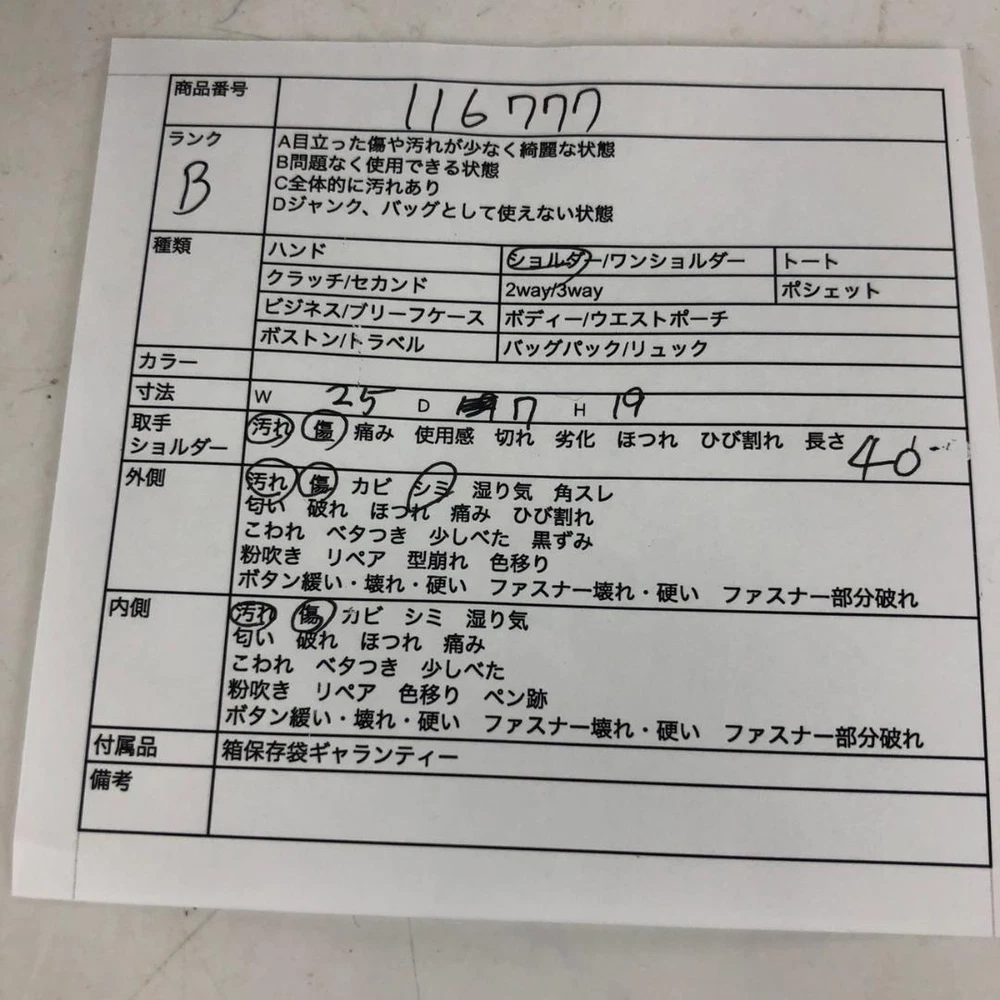 商品番号 116777
ランク B
A目立った傷や汚れが少なく綺麗な状態
B問題なく使用できる状態
C全体的に汚れあり
Dジャンク、バッグとして使えない状態
種類 ハンド ショルダー/ワンショルダー トート
クラッチ/セカンド 2way/3way ポシェット
ビジネス/ブリーフケース ボディー/ウエストポーチ
ボストン/トラベル バッグパック/リュック
カラー
寸法 W 25 D 7 H 19
取手
ショルダー 汚れ 傷 痛み 使用感 切れ 劣化 ほつれ ひび割れ 長さ 40
外側 汚れ 傷 カビ シミ 湿り気 角スレ
匂い 破れ ほつれ 痛み ひび割れ
こわれ ベタつき 少しべた 黒ずみ
粉吹き リペア 型崩れ 色移り
ボタン緩い・壊れ・硬い ファスナー壊れ・硬い ファスナー部分破れ
内側 汚れ 傷 カビ シミ 湿り気
匂い 破れ ほつれ 痛み
こわれ ベタつき 少しべた
粉吹き リペア 色移り ペン跡
ボタン緩い・壊れ・硬い ファスナー壊れ・硬い ファスナー部分破れ
付属品 箱保存袋ギャランティー
備考